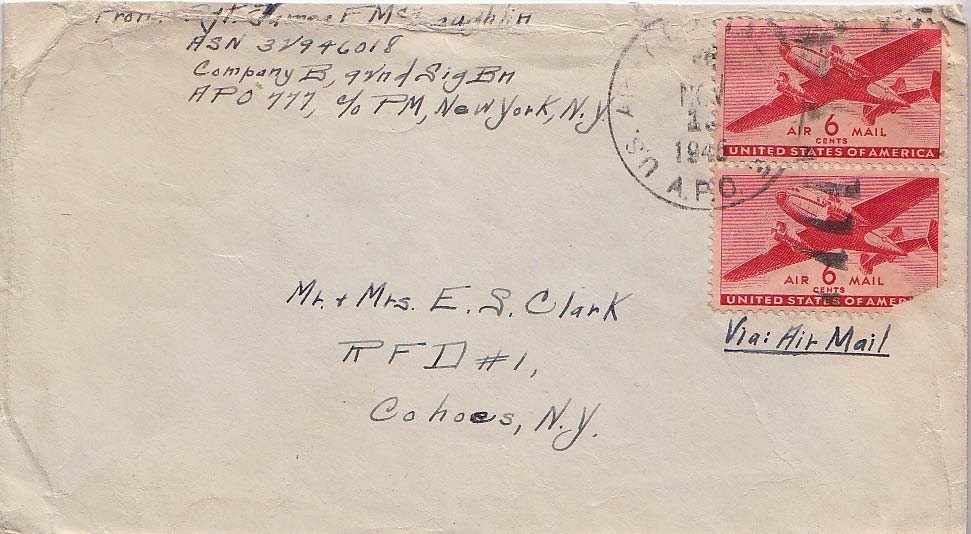 From: Sgt. James F McLaughlin
ASN 32946018
Company B, 92nd Sig Bn
APO 777, c/o PM, New York, N.Y.
U.S. A.P.O.
NOV
1946
AIR 6 MAIL
CENTS
UNITED STATES OF AMERICA
AIR 6 MAIL
CENTS
UNITED STATES OF AMER
Via: Air Mail
Mr. + Mrs. E. S. Clark
RFD #1,
Cohoes, N.Y.